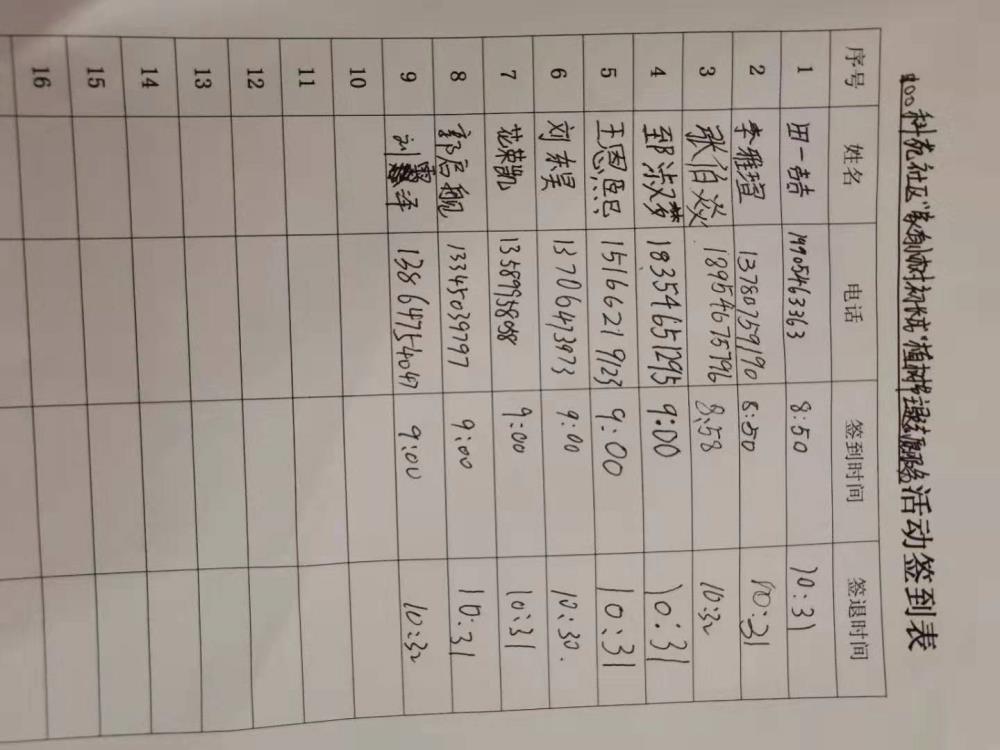 科苑社区"家有小树初长成"植树 活动签到表
序号 姓名 电话 签到时间 签退时间
1 田一喆 19905463363 8:50 10:31
2 李雅瑄 13780759190 8:50 10:31
3 张伯焱 18954675796 8:58 10:32
4 郅淑梦 18354651295 9:00 10:31
5 王恩熙 15166219123 9:00 10:31
6 刘东昊 13706473973 9:00 10:30.
7 花荣凯 13589995898 9:00 10:31
8 郭启舰 13345039797 9:00 10:31
9 刘 泽 13864754047 9:00 10:32
10
11
12
13
14
15
16